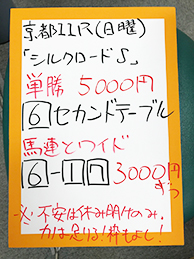 京都11R(日曜)
「シルクロードS」
単勝 5000円
6 セカンドテーブル
馬連とワイド
6-17 3000円ずつ
※不安は休み明けのみ。
力は足りる!枠もよし!